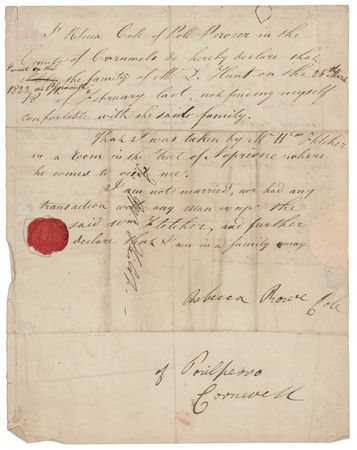 I Rebeca Cole of Pol Perower in the
County of Cornwele do hereby declare that
I went in the
the family of Mr. D. Hunt on the 25th March
1822, at Plymouth
of February last, not finding myself
comfortable with the same family.
That I was taken by Mr. Wm. Fletcher
in a room in the Street of Nopricone where
he comes to visit me.
I am not married, nor had any
transaction with any man except the
said Wm Fletcher, and further
declare that I am in a family way
Rebecca Rowe Cole
of Poulperro
Cornwell